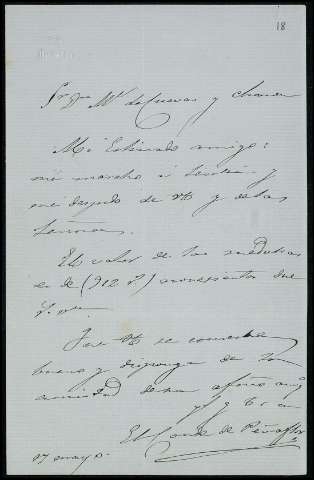 18
Sr Dn Ml. de Cuevas y
Mi Estimado amigo:
me marcho á Sevilla y
me despido de V. y de las
Señoras.
El valor de las medallas
es de (912 r) novecientos doce
Que V. se conserve
bueno y disponga de la
amistad de su afmo amigo
q. b. s. m
El Conde de Peñaflor
17 mayo.